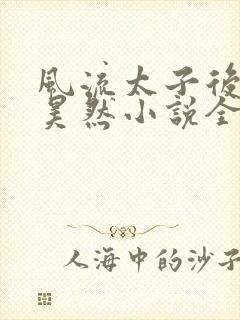 風流太子後
昊然小說全
人海中的沙子